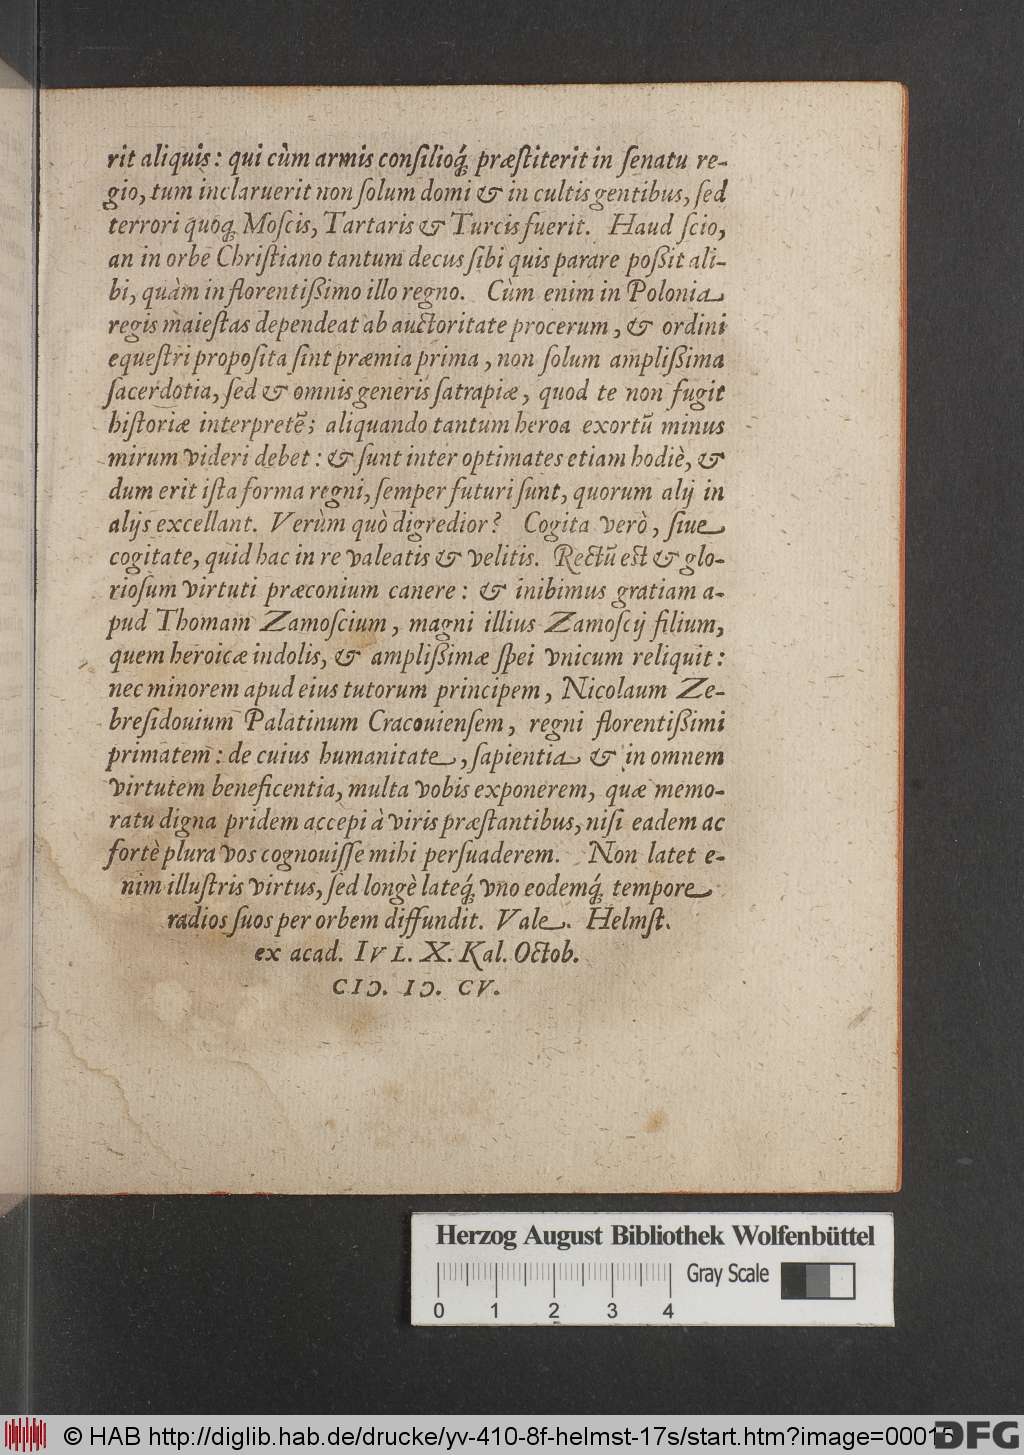 rit aliquis: qui cùm armis conſilioq́; præſtiterit in ſenatu re-
gio, tum inclaruerit non ſolum domi & in cultis gentibus, ſed
terrori quoq; Moſcis, Tartaris & Turcis fuerit. Haud ſcio,
an in orbe Chriſtiano tantum decus ſibi quis parare poßit ali-
bi, quàm in florentißimo illo regno. Cùm enim in Polonia
regis maieſtas dependeat ab auctoritate procerum, & ordini
equeſtri propoſita ſint præmia prima, non ſolum amplißima
ſacerdotia, ſed & omnis generis ſatrapiæ, quod te non fugit
hiſtoriæ interpretē; aliquando tantum heroa exortū minus
mirum videri debet: & ſunt inter optimates etiam hodiè, &
dum erit iſta forma regni, ſemper futuri ſunt, quorum alij in
alijs excellant. Verùm quò digredior? Cogita verò, ſiue
cogitate, quid hac in re valeatis & velitis. Rectū est & glo-
rioſum virtuti præconium canere: & inibimus gratiam a-
pud Thomam Zamoſcium, magni illius Zamoſcij filium,
quem heroicæ indolis, & amplißimæ ſpei vnicum reliquit:
nec minorem apud eius tutorum principem, Nicolaum Ze-
breſidouium Palatinum Cracouienſem, regni florentißimi
primatem: de cuius humanitate, ſapientia & in omnem
virtutem beneficentia, multa vobis exponerem, quæ memo-
ratu digna pridem accepi à viris præſtantibus, niſi eadem ac
fortè plura vos cognouiſſe mihi perſuaderem. Non latet e-
nim illuſtris virtus, ſed longè lateq́; vno eodemq́; tempore
radios ſuos per orbem diffundit. Vale. Helmſt.
ex acad. IVL. X. Kal. Octob.
CIƆ. IƆ. CV.
Herzog August Bibliothek Wolfenbüttel
Gray Scale
0 1 2 3 4
© HAB http://diglib.hab.de/drucke/yv-410-8f-helmst-17s/start.htm?image=00015
DFG